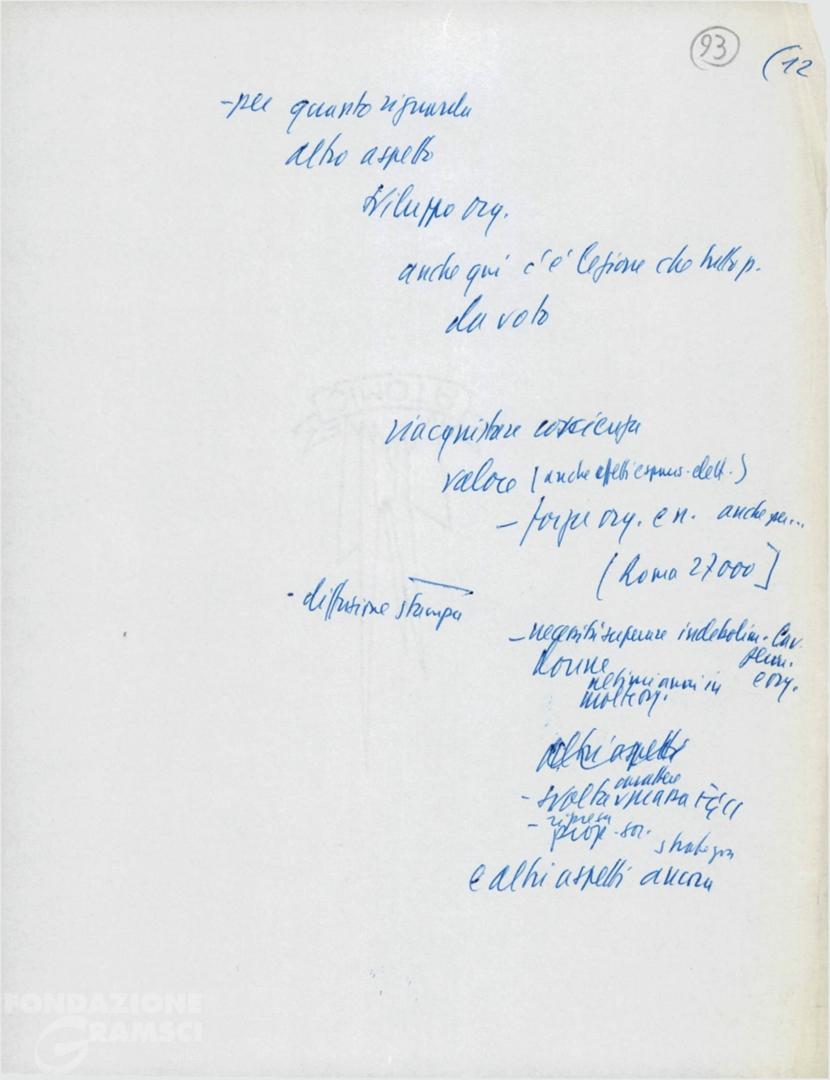 93
(12
-per quanto riguarda
altro aspetto
sviluppo org.
anche qui c'è lezione che
da voto
riacquistare coscienza
valore (anche effetti dell.)
- forze org. e n. anche per...
(Roma 27000]
- diffusione stampa
- necessità superare indebolim. lav.
donne
e org.
negli ultimi anni in
molte org.
altri aspetti
carattere
- svolta
- ripresa
prop.
strategia
e altri aspetti ancora
FONDAZIONE
GRAMSCI